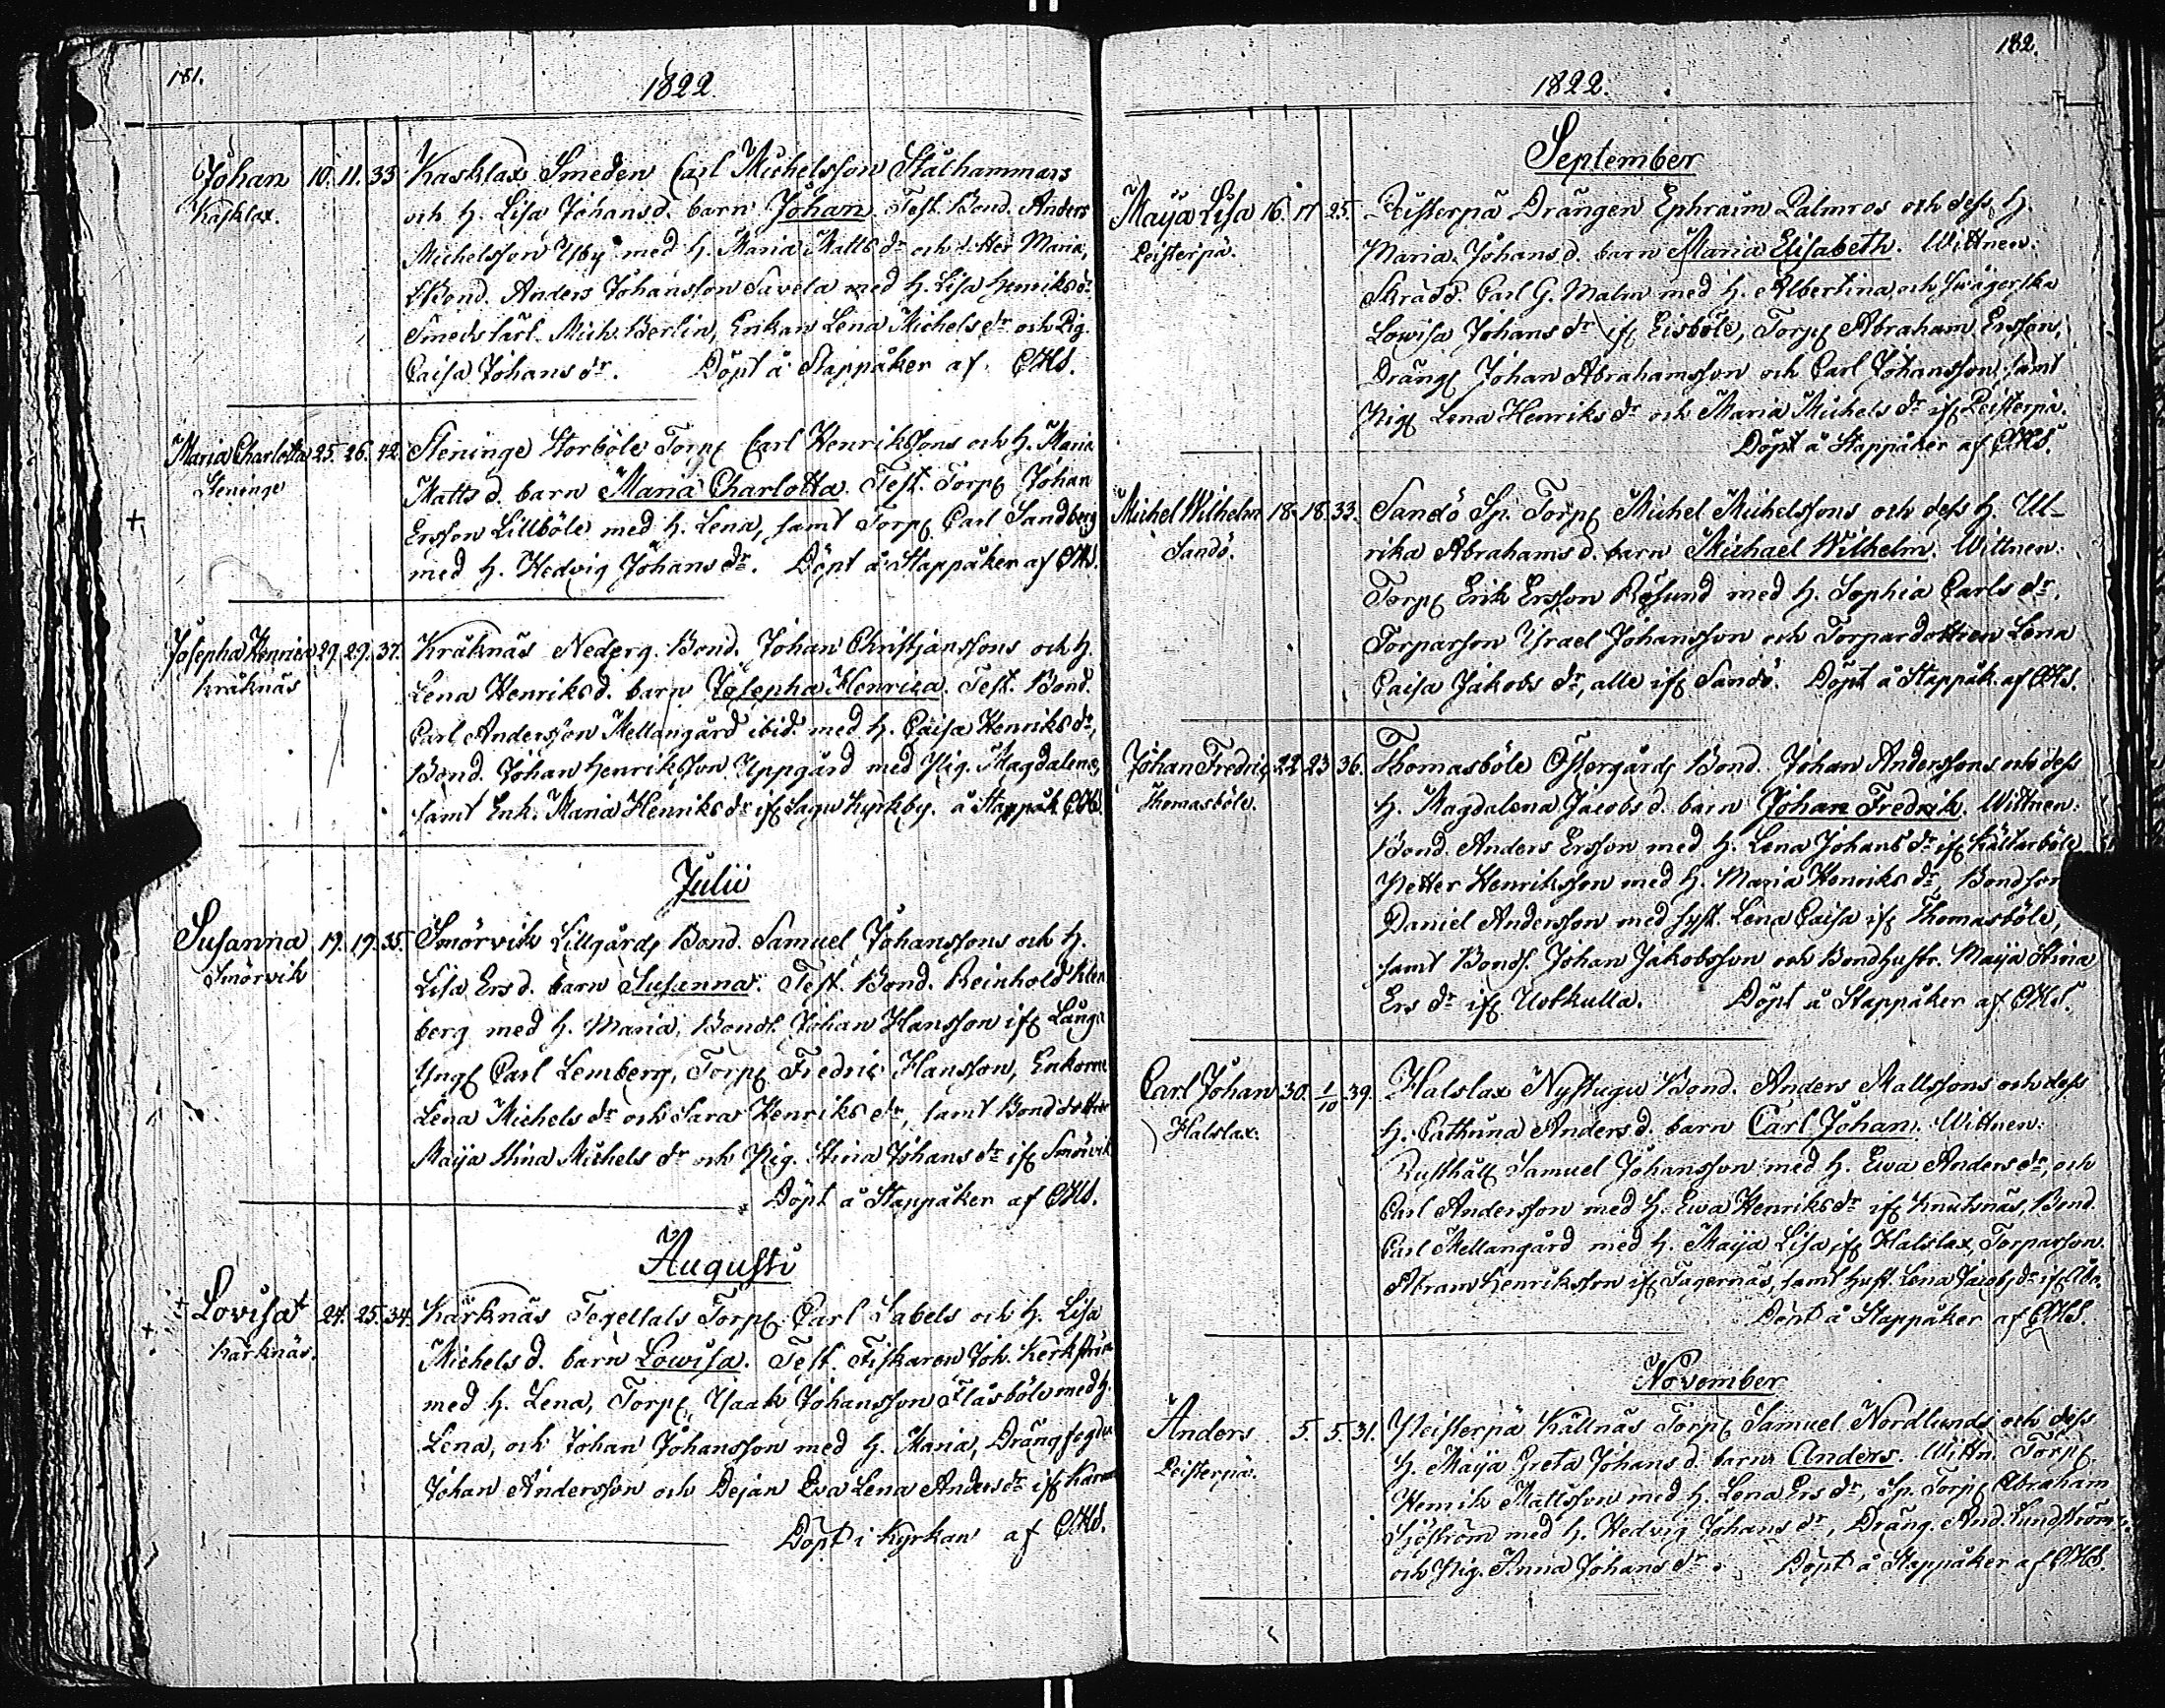 181.
1822
Johan 10. 11. 33 Kasklax Smeden Carl Michelsson Stålhammars
Kasklax. och h. Lisa Johansd. barn Johan. Test. Bond. Anders
Michelsson Ysby med h. Maria Matts dr och dotter Maria,
Bond. Anders Johansson Savela med h. Lisa Henriks dr
Smeds lärl. Mich. Berlin, Enkan Lena Michels dr och Pig.
Caisa Johans dr. Döpt å Stappåker af
Maria Charlotta 25. 26. 42. Steninge Storböle Torp Carl Henrikssons och h. Maria
Steninge Matts d. barn Maria Charlotta. Test. Torp Johan
Ersson Lillböle med h. Lena, samt Torp Carl Sandberg
med h. Hedvig Johans dr. Döpt å Stappåker af
Josepha Henrica 29. 29. 37. Kräknäs Nederg. Bond. Johan Christjanssons och h.
Kräknäs Lena Henriksd. barn Josepha Henrica. Test. Bond.
Carl Andersson Mellangård ibid. med h. Caisa Henriks dr,
Bond. Johan Henriksson Uppgård med Pig. Magdalena,
samt Enk. Maria Henriks dr if Sagu Kyrkby. å Stappåk.
Julii
Susanna 19. 19. 35. Smörvik Lillgårds Bond. Samuel Johanssons och h.
Smörvik Lisa Ers d. barn Susanna. Test. Bond. Reinhold
berg med h. Maria, Bonds. Johan Hansson if
Yngl Carl Lemberg, Torp Fredric Hansson, Enkorna
Lena Michels dr och Sara Henriks dr, samt Bonddotter
Maija Stina Michels dr och Pig. Stina Johans dr if Smörvik
Döpt å Stappåker af
Augusti
Lovisa 24. 25. 34. Kärknäs Tegelsals Torp Carl Sabels och h. Lisa
Kärknäs. Michels d. barn Lowisa. Test. Fiskaren Joh.
med h. Lena, Torp Isaak Johansson Flåsböle med h.
Lena, och Johan Johansson med h. Maria, Drängfogden
Johan Andersson och Dejan Eva Lena Anders dr if
Döpt i Kyrkan af
182.
1822.
September
Maija Lisa 16. 17 25. Peisterpä Drängen Ephraim Palmros och dess h.
Peisterpä. Maria Johans d. barn Maria Elisabeth. Wittnen:
Skrädd. Carl G. Malm med h. Albertina, och Swägerska
Lowisa Johans dr if Eisböle, Torp Abraham Ersson,
Dräng Johan Abrahamsson och Carl Johansson samt
Pig Lena Henriks dr och Maria Michels dr if Peisterpä.
Döpt å Stappåker af
Michel Wilhelm 18. 18. 33. Sandö Sp. Torp Michel Michelssons och dess h. Ul-
Sandö. rika Abrahams d. barn Michael Wilhelm. Wittnen:
Torp Erik Ersson Rösund med h. Sophia Carls dr,
Torparson Israel Johansson och Torpardottren Lena
Caisa Jakobs dr, alle if Sandö. Döpt å Stappåk. af
Johan Fredric 22 23 36. Thomasböle Östergårds Bond. Johan Anderssons och dess
Thomasböle. h. Magdalena Jacobs d. barn Johan Fredrik. Wittnen:
Bond. Anders Ersson med h. Lena Johans dr if
Petter Henriksson med h. Maria Henriks dr, Bondson
Daniel Andersson med syst. Lena Caisa if Thomasböle,
samt Bonds. Johan Jakobsson och Bondhustr. Maija Stina
Ers dr if Utkulla. Döpt å Stappåker af
Carl Johan 30. 1/10 39. Halslax Nystugu Bond. Anders Mattssons och dess
Halslax. h. Cathrina Anders d. barn Carl Johan. Wittnen:
Rusthåll Samuel Johansson med h. Ewa Anders dr, och
Carl Andersson med h. Ewa Henriks dr if Knutsnäs, Bond.
Carl Mellangård med h. Maija Lisa if Halslax, Torparson
Abram Henriksson if Fagernäs, samt hust. Lena Jacobs dr if Åbo.
Döpt å Stappåker af
November
Anders 5. 5. 31. Peisterpä Källnäs Torp Samuel Nordlunds och dess
Peisterpä. h. Maija Greta Johans d. barn Anders. Wittn. Torp
Henrik Mattsson med h. Lena Ers dr, Sp. Torp Abraham
Sjöström med h. Hedvig Johans dr, Dräng. And. Lundström
och Pig. Anna Johans dr. Döpt å Stappåker af